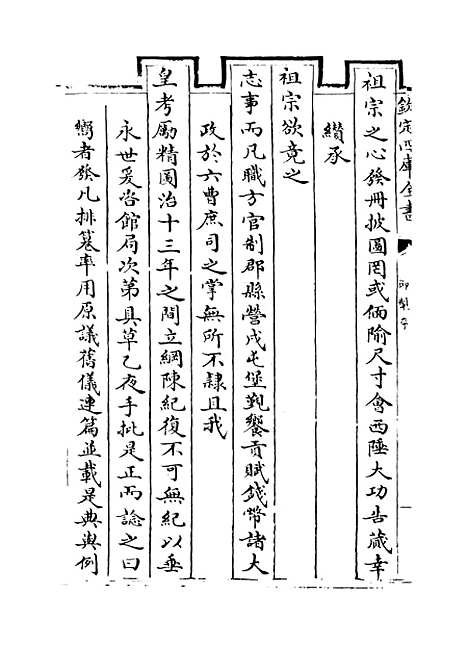 欽定四庫全書
祖宗之心發冊披圖罔或偭隃尺寸會西陲大功告蕆幸
纘承
祖宗欲竟之
志事而凡職方官制郡縣營戍屯堡覲饗貢賦錢幣諸大
政於六曹庶司之掌無所不隸且我
皇考厲精圖治十三年之間立綱陳紀復不可無紀以垂
永世爰咨館局次第具草乙夜手批是正而諗之曰
嚮者發凡排纂率用原議舊儀連篇並載是典與例